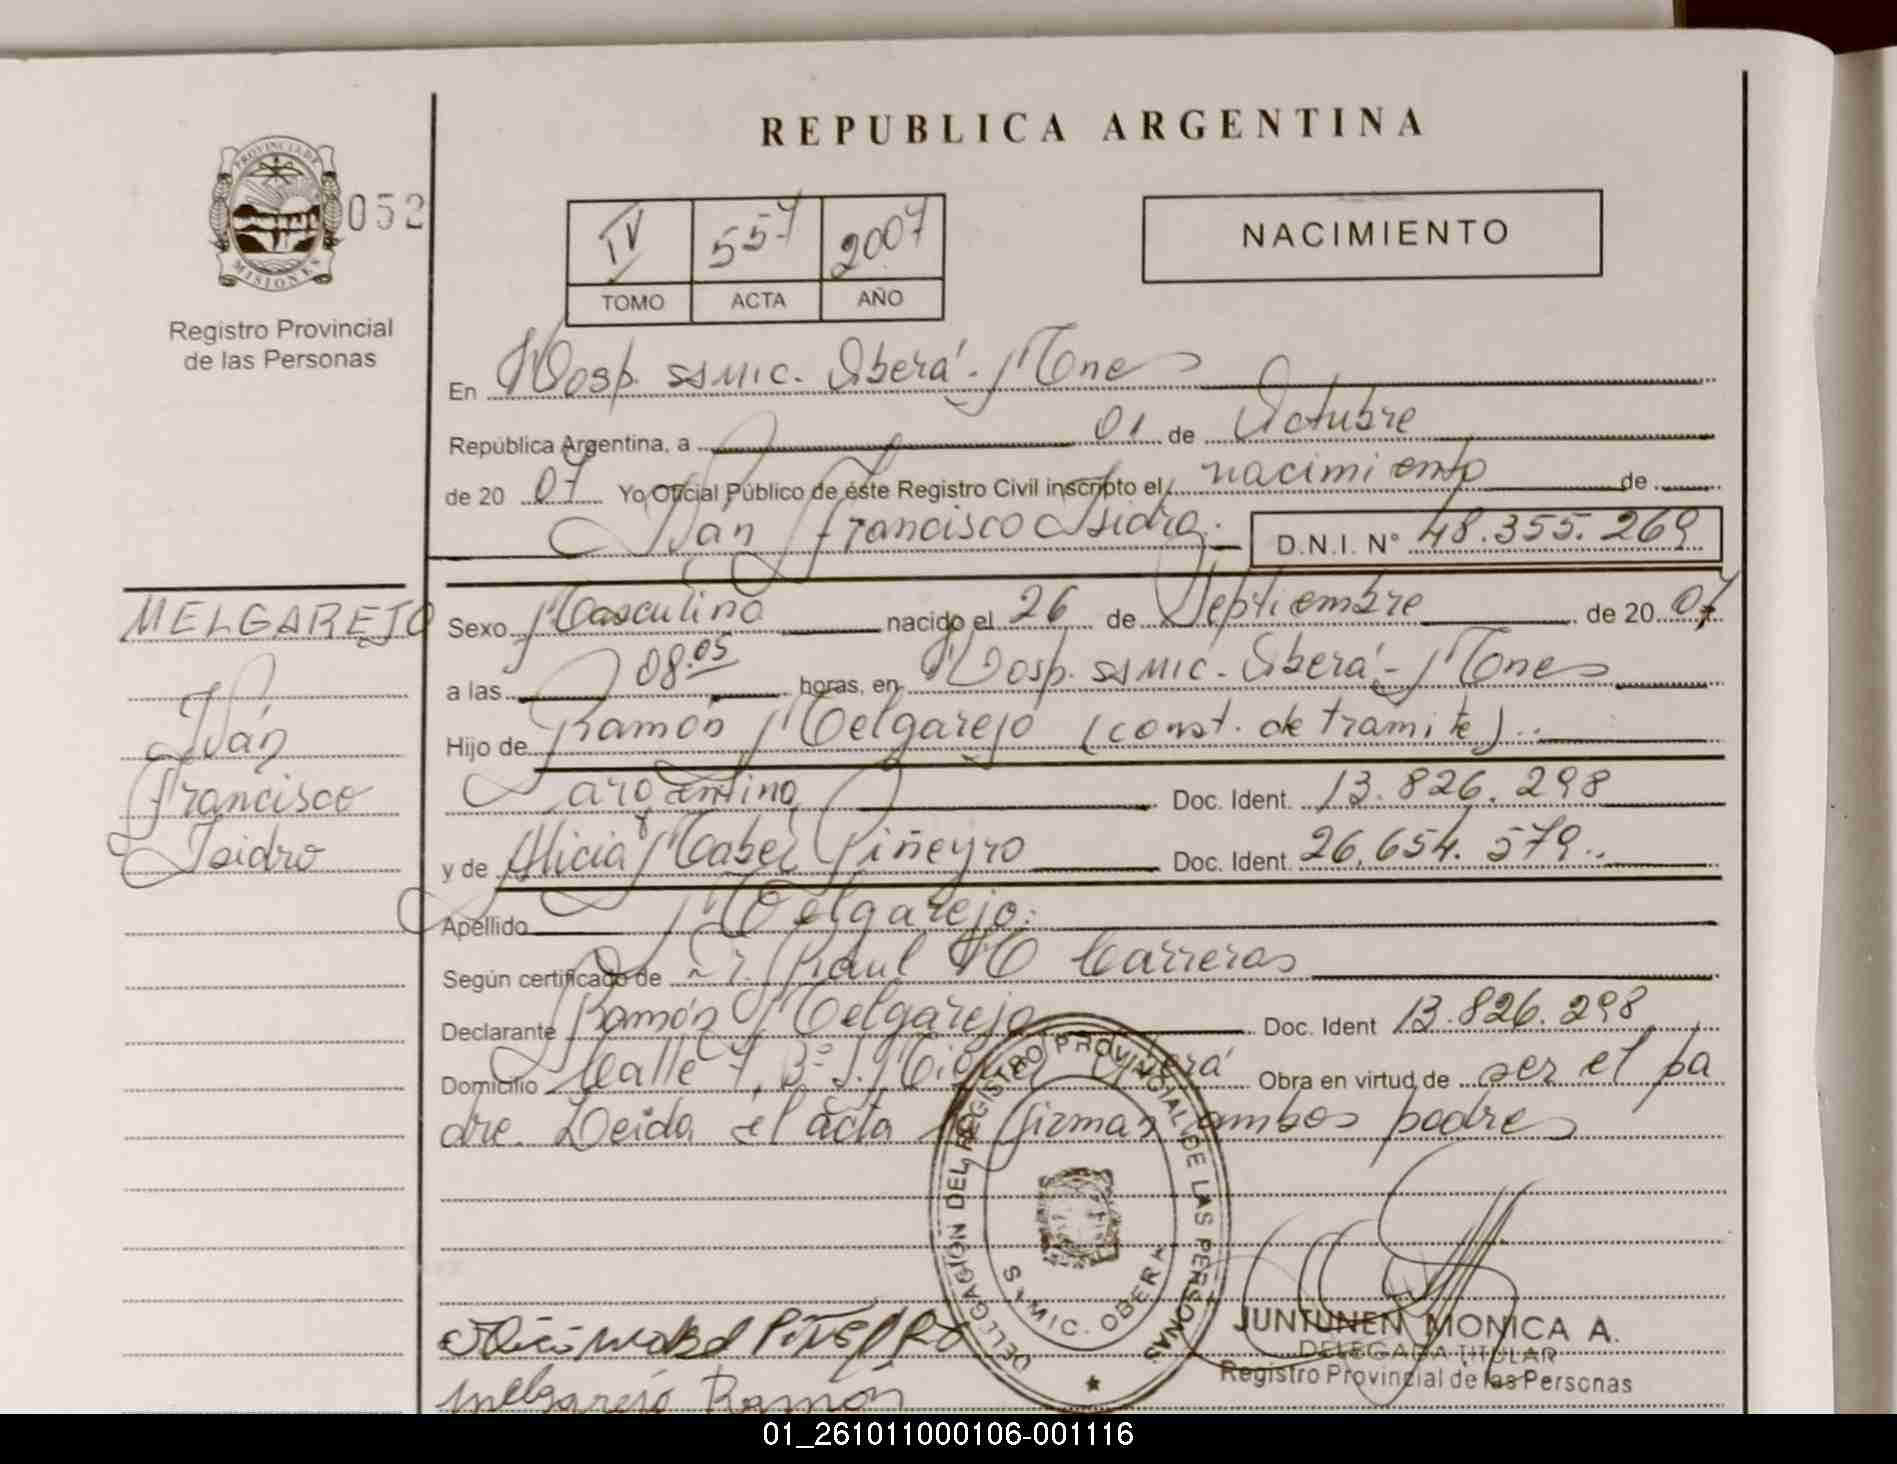 REPUBLICA ARGENTINA
PROVINCIA DE
MISIONES
052
Registro Provincial
de las Personas
IV 557 2007
TOMO ACTA AÑO
NACIMIENTO
En Hosp. SSMIC. Oberá - Mnes
República Argentina, a 01 de Octubre
de 20 07 Yo Oficial Público de éste Registro Civil inscripto el nacimiento de
Iván Francisco Isidro. D.N.I. N° 48.355.269
MELGAREJO
Iván
Francisco
Isidro
Sexo Masculino nacido el 26 de Septiembre de 20 07
a las 08.05 horas, en Hosp. SSMIC - Oberá - Mnes
Hijo de Ramón Melgarejo (const. de tramite)..
argentino Doc. Ident. 13.826.298
y de Alicia Mabel Piñeyro Doc. Ident. 26.654.579..
Apellido Melgarejo.
Según certificado de Dr. Raul H Carreras
Declarante Ramón Melgarejo Doc. Ident 13.826.298
Domicilio Calle 7, B° S. Miguel Oberá Obra en virtud de ser el pa
dre. Leida el acta firman ambos padres
DELEGACION DEL REGISTRO PROVINCIAL DE LAS PERSONAS
OBERA
JUNTUNEN MONICA A.
DELEGADA TITULAR
Registro Provincial de las Personas
Alicia Mabel PiñEyRO
Melgarejo Ramón
01_261011000106-001116